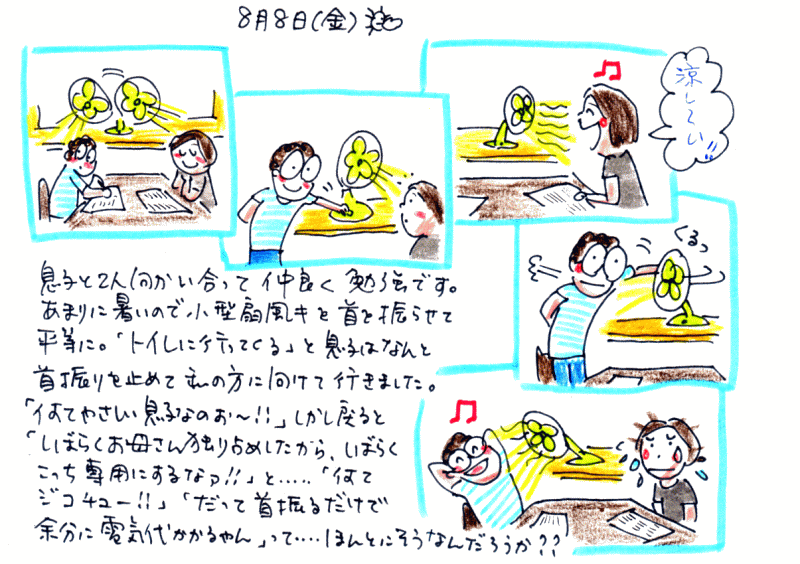 8月8日(金)
涼しくい!!
くるっ
息子と2人向かい合って仲良く勉強です。
あまりに暑いので小型扇風キを首を振らせて
平等に。「トイレに行ってくる」と息子はなんと
首振りを止めて私の方に向けて行きました。
「何てやさしい息子なのお〜!!」しかし戻ると
「しばらくお母さん独り占めしたから、しばらく
こっち専用にするなァ!!」と‥‥‥「何て
ジコチュー!!」「だって首振るだけで
余分に電気代かかるやん」って‥‥ほんとにそうなんだろうか??